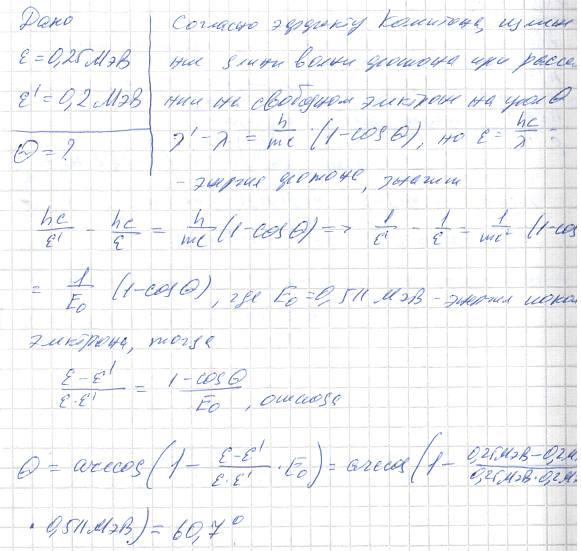 Дано
ε = 0,25 МэВ
ε' = 0,2 МэВ
Θ = ?
Согласно эффекту Комптона, измене
ние длины волны фотона при рассея
нии на свободном электроне на угол Θ
λ' - λ = h/mc · (1 - cos Θ), но ε = hc/λ =
- энергия фотона, значит
hc/ε' - hc/ε = h/mc (1 - cos Θ) => 1/ε' - 1/ε = 1/mc² (1 - cos
= 1/E₀ (1 - cos Θ), где E₀ = 0,511 МэВ - энергия покоя
электрона, тогда
(ε - ε')/(ε · ε') = (1 - cos Θ)/E₀, откуда
Θ = arccos(1 - (ε - ε')/(ε · ε') · E₀) = arccos(1 - (0,25 МэВ - 0,2 М)/(0,25 МэВ · 0,2 М
· 0,511 МэВ) = 60,7°